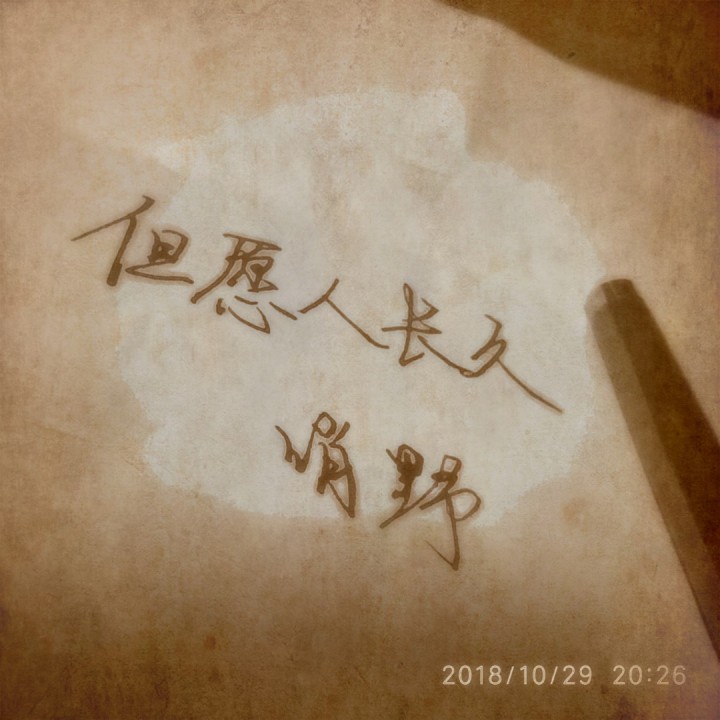 但愿人长久
哨野
2018/10/29 20:26